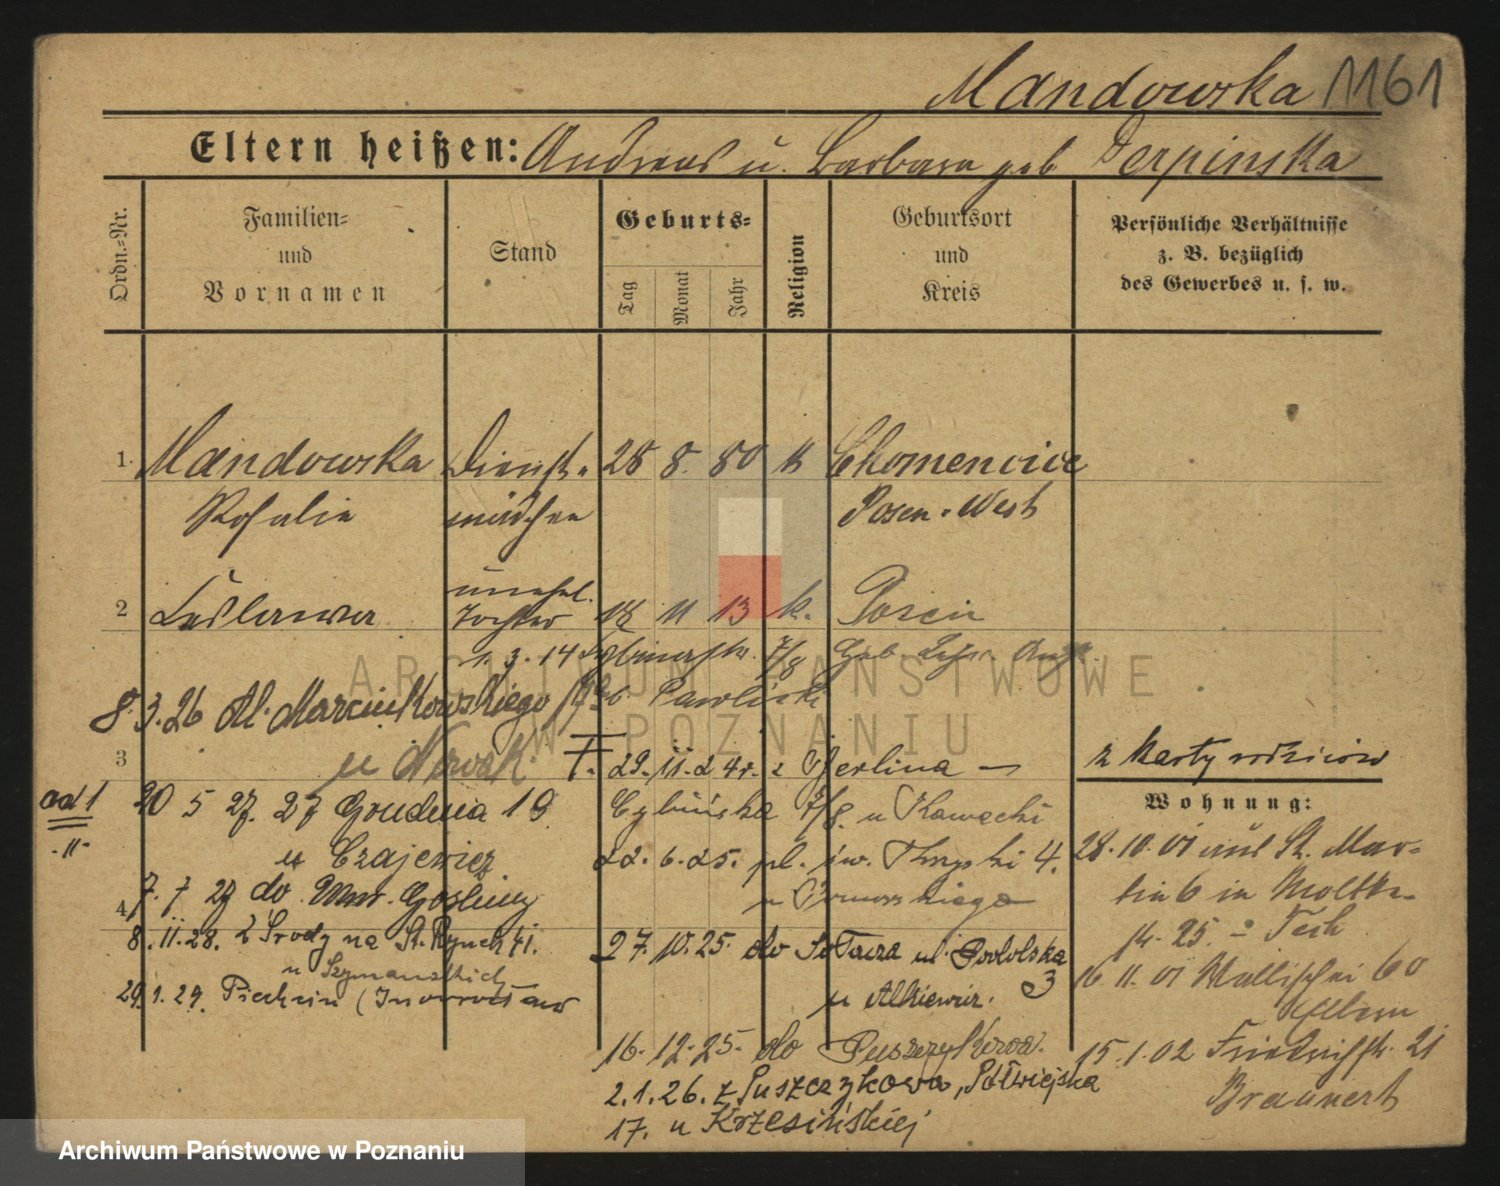 Mandowska 1161
Eltern heißen: Andreas u. Barbara geb Derpinska
Ordn.=Nr.
Familien=
und
Vornamen
Stand
Geburts=
Tag
Monat
Jahr
Religion
Geburtsort
und
Kreis
Persönliche Verhältnisse
z. B. bezüglich
des Gewerbes u. s. w.
1. Mandowska Dienst= 28 8. 80 k Chomencice
Rosalie mädchen Posen=West
unehel.
2 Ladislawa Tochter 18 11 13 k. Posen
1. 3. 14 7/8
8.3.26 Al. Marcinkowskiego
u Nowak
3 29. 11. 24 z Berlina —
z karty rodziców
od 1
. 11 .
20 5 27. 27 Grudnia 19
u Czajewicz
Cybińska 7/8. u Kawecki
22. 6. 25. pl. św. 4.
7. 7 27 do Mur. Gośliny
4
8. 11. 28. z Środy na St. Rynek 41.
u Szymańskich
29.1.29. Piechnin (Inowrocław
27. 10. 25. do Sołacza ul. Podolska
3
u Alkiewicz.
16. 12. 25. do Puszczykowa.
2. 1. 26. z Puszczykowa, Półwiejska
17. u Krzesińskiej
Wohnung:
28. 10. 01 aus St. Mar=
tin 6 in Moltke=
str. 25.
16. 11. 01 Wallischei 60
Eltern
15. 1. 02 Friedrichstr. 21
Braunert
ARCHIWUM PAŃSTWOWE
W POZNANIU
Archiwum Państwowe w Poznaniu